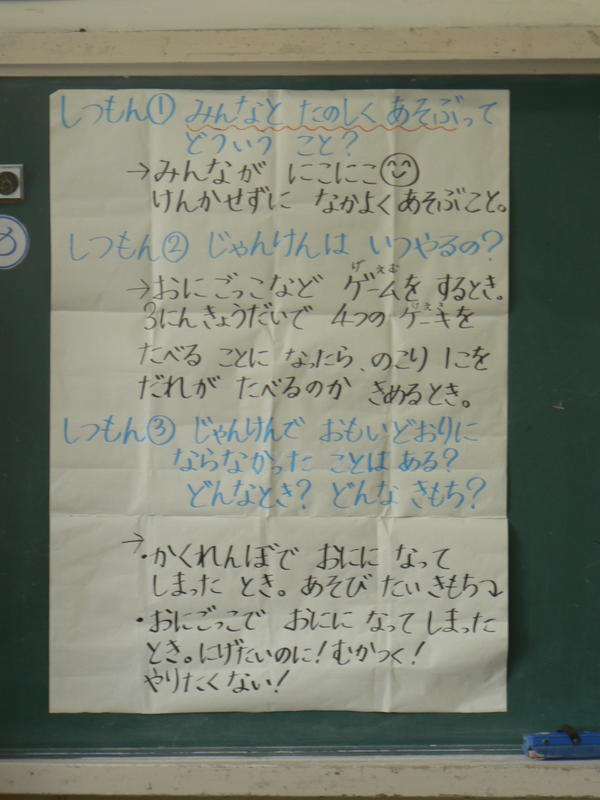 しつもん① みんなと たのしく あそぶって
どういう こと?
→みんなが にこにこ
けんかせずに なかよく あそぶこと。
しつもん② じゃんけんは いつやるの?
げえむ
→おにごっこなど ゲームを するとき。
けえき
3にんきょうだいで 4つの ケーキを
たべる ことに なったら、のこり 1こを
だれが たべるのか きめるとき。
しつもん③ じゃんけんで おもいどおりに
ならなかった ことは ある?
どんなとき? どんな きもち?
→
・かくれんぼで おにに なって
しまった とき。あそび たい きもち
・おにごっこで おにに なって しまった
とき。にげたいのに!むかつく!
やりたくない!